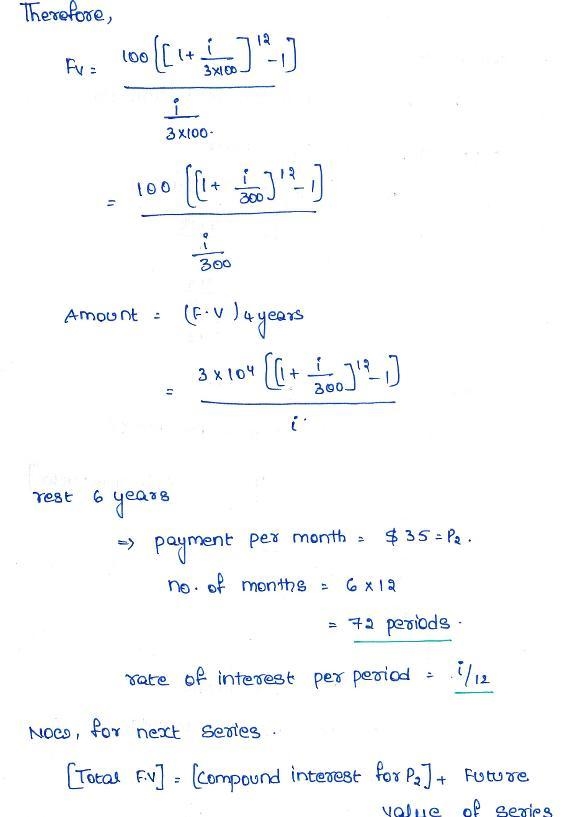 Therefore,
Fv = 100 [[1 + i/3×100]^12 - 1] / i/3×100.
= 100 [[1 + i/300]^12 - 1] / i/300
Amount = (F.V)4 years
= 3×10^4 [[1 + i/300]^12 - 1] / i.
rest 6 years
=> payment per month = $35 = P2.
no. of months = 6 × 12
= 72 periods.
rate of interest per period = i/12
Now, for next series.
[Total F.V] = [compound interest for P2] + Future
value of series